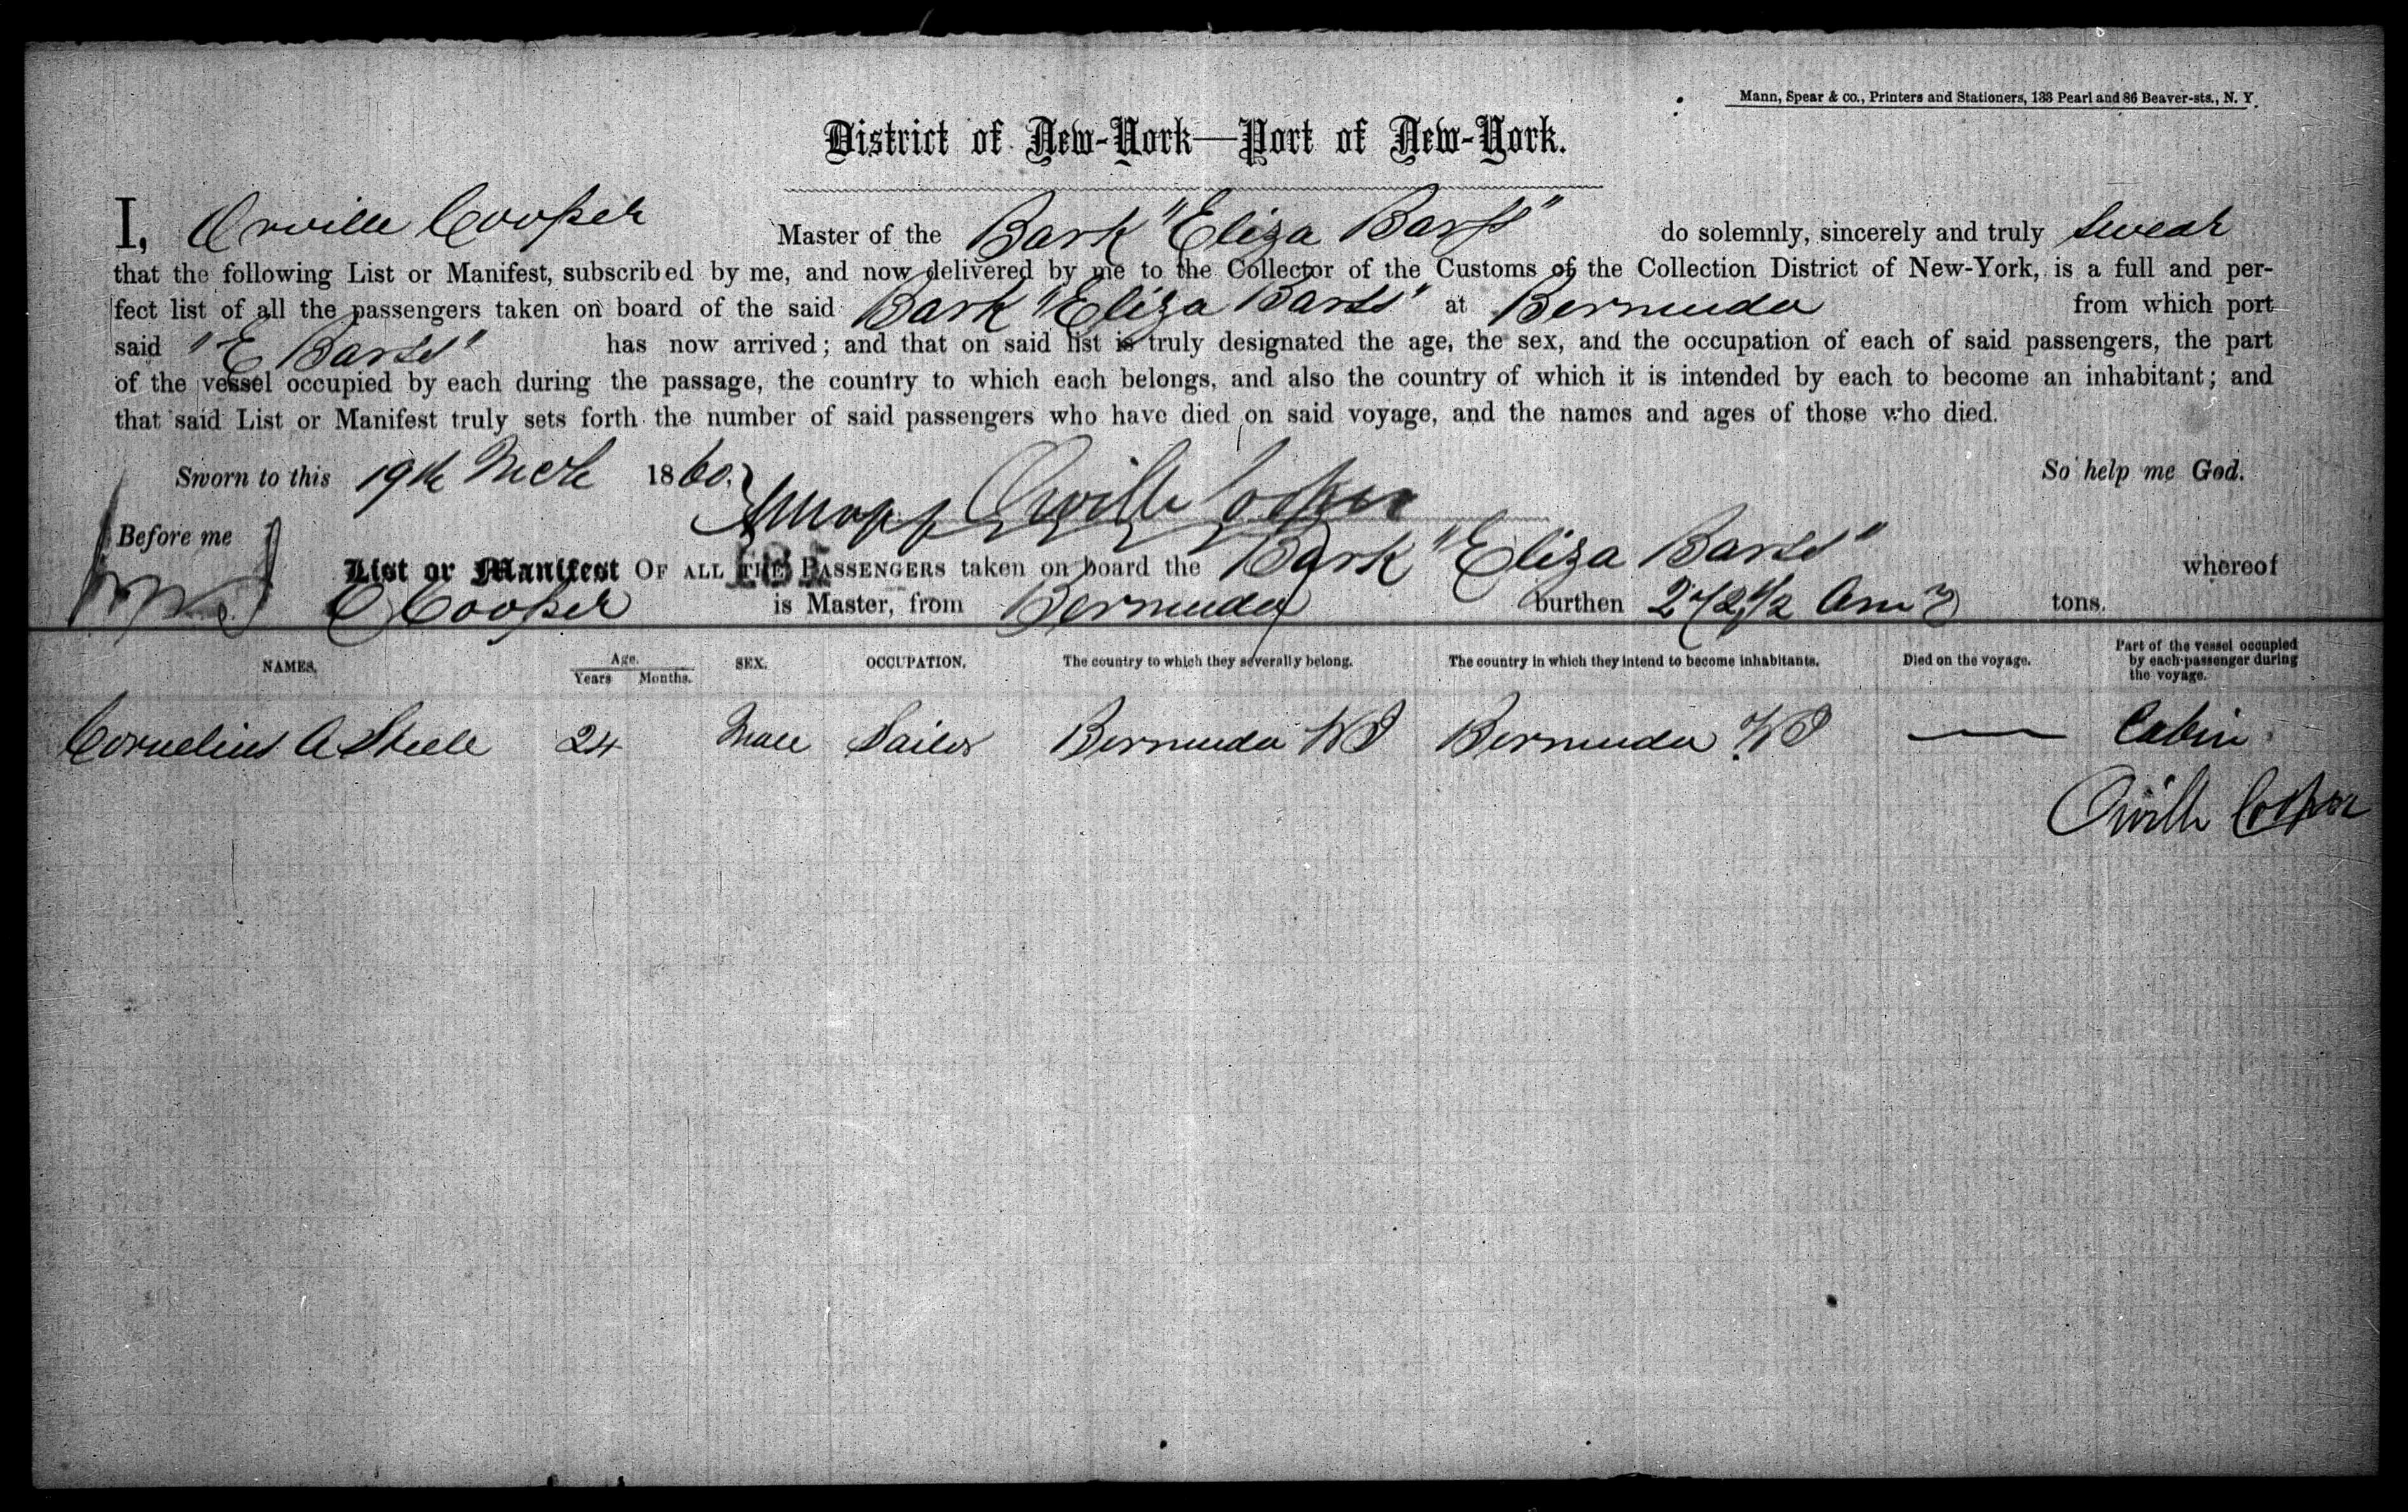 Mann, Spear & co., Printers and Stationers, 133 Pearl and 86 Beaver-sts., N. Y.
District of New-York—Port of New-York.
I, Orville Cooper Master of the Bark "Eliza Barss" do solemnly, sincerely and truly swear
that the following List or Manifest, subscribed by me, and now delivered by me to the Collector of the Customs of the Collection District of New-York, is a full and per-
fect list of all the passengers taken on board of the said Bark "Eliza Barss" at Bermuda from which port
said "E Barss" has now arrived; and that on said list is truly designated the age, the sex, and the occupation of each of said passengers, the part
of the vessel occupied by each during the passage, the country to which each belongs, and also the country of which it is intended by each to become an inhabitant; and
that said List or Manifest truly sets forth the number of said passengers who have died on said voyage, and the names and ages of those who died.
Sworn to this 19th Mch 1860. Orville Cooper So help me God.
Before me
List or Manifest OF ALL THE PASSENGERS taken on board the Bark "Eliza Barss" whereof
O Cooper is Master, from Bermuda burthen tons.
NAMES. Age. Years Months. SEX. OCCUPATION. The country to which they severally belong. The country in which they intend to become inhabitants. Died on the voyage. Part of the vessel occupied by each passenger during the voyage.
Cornelius A Steele 24 Male Sailor Bermuda WI Bermuda WI — Cabin
Orville Cooper